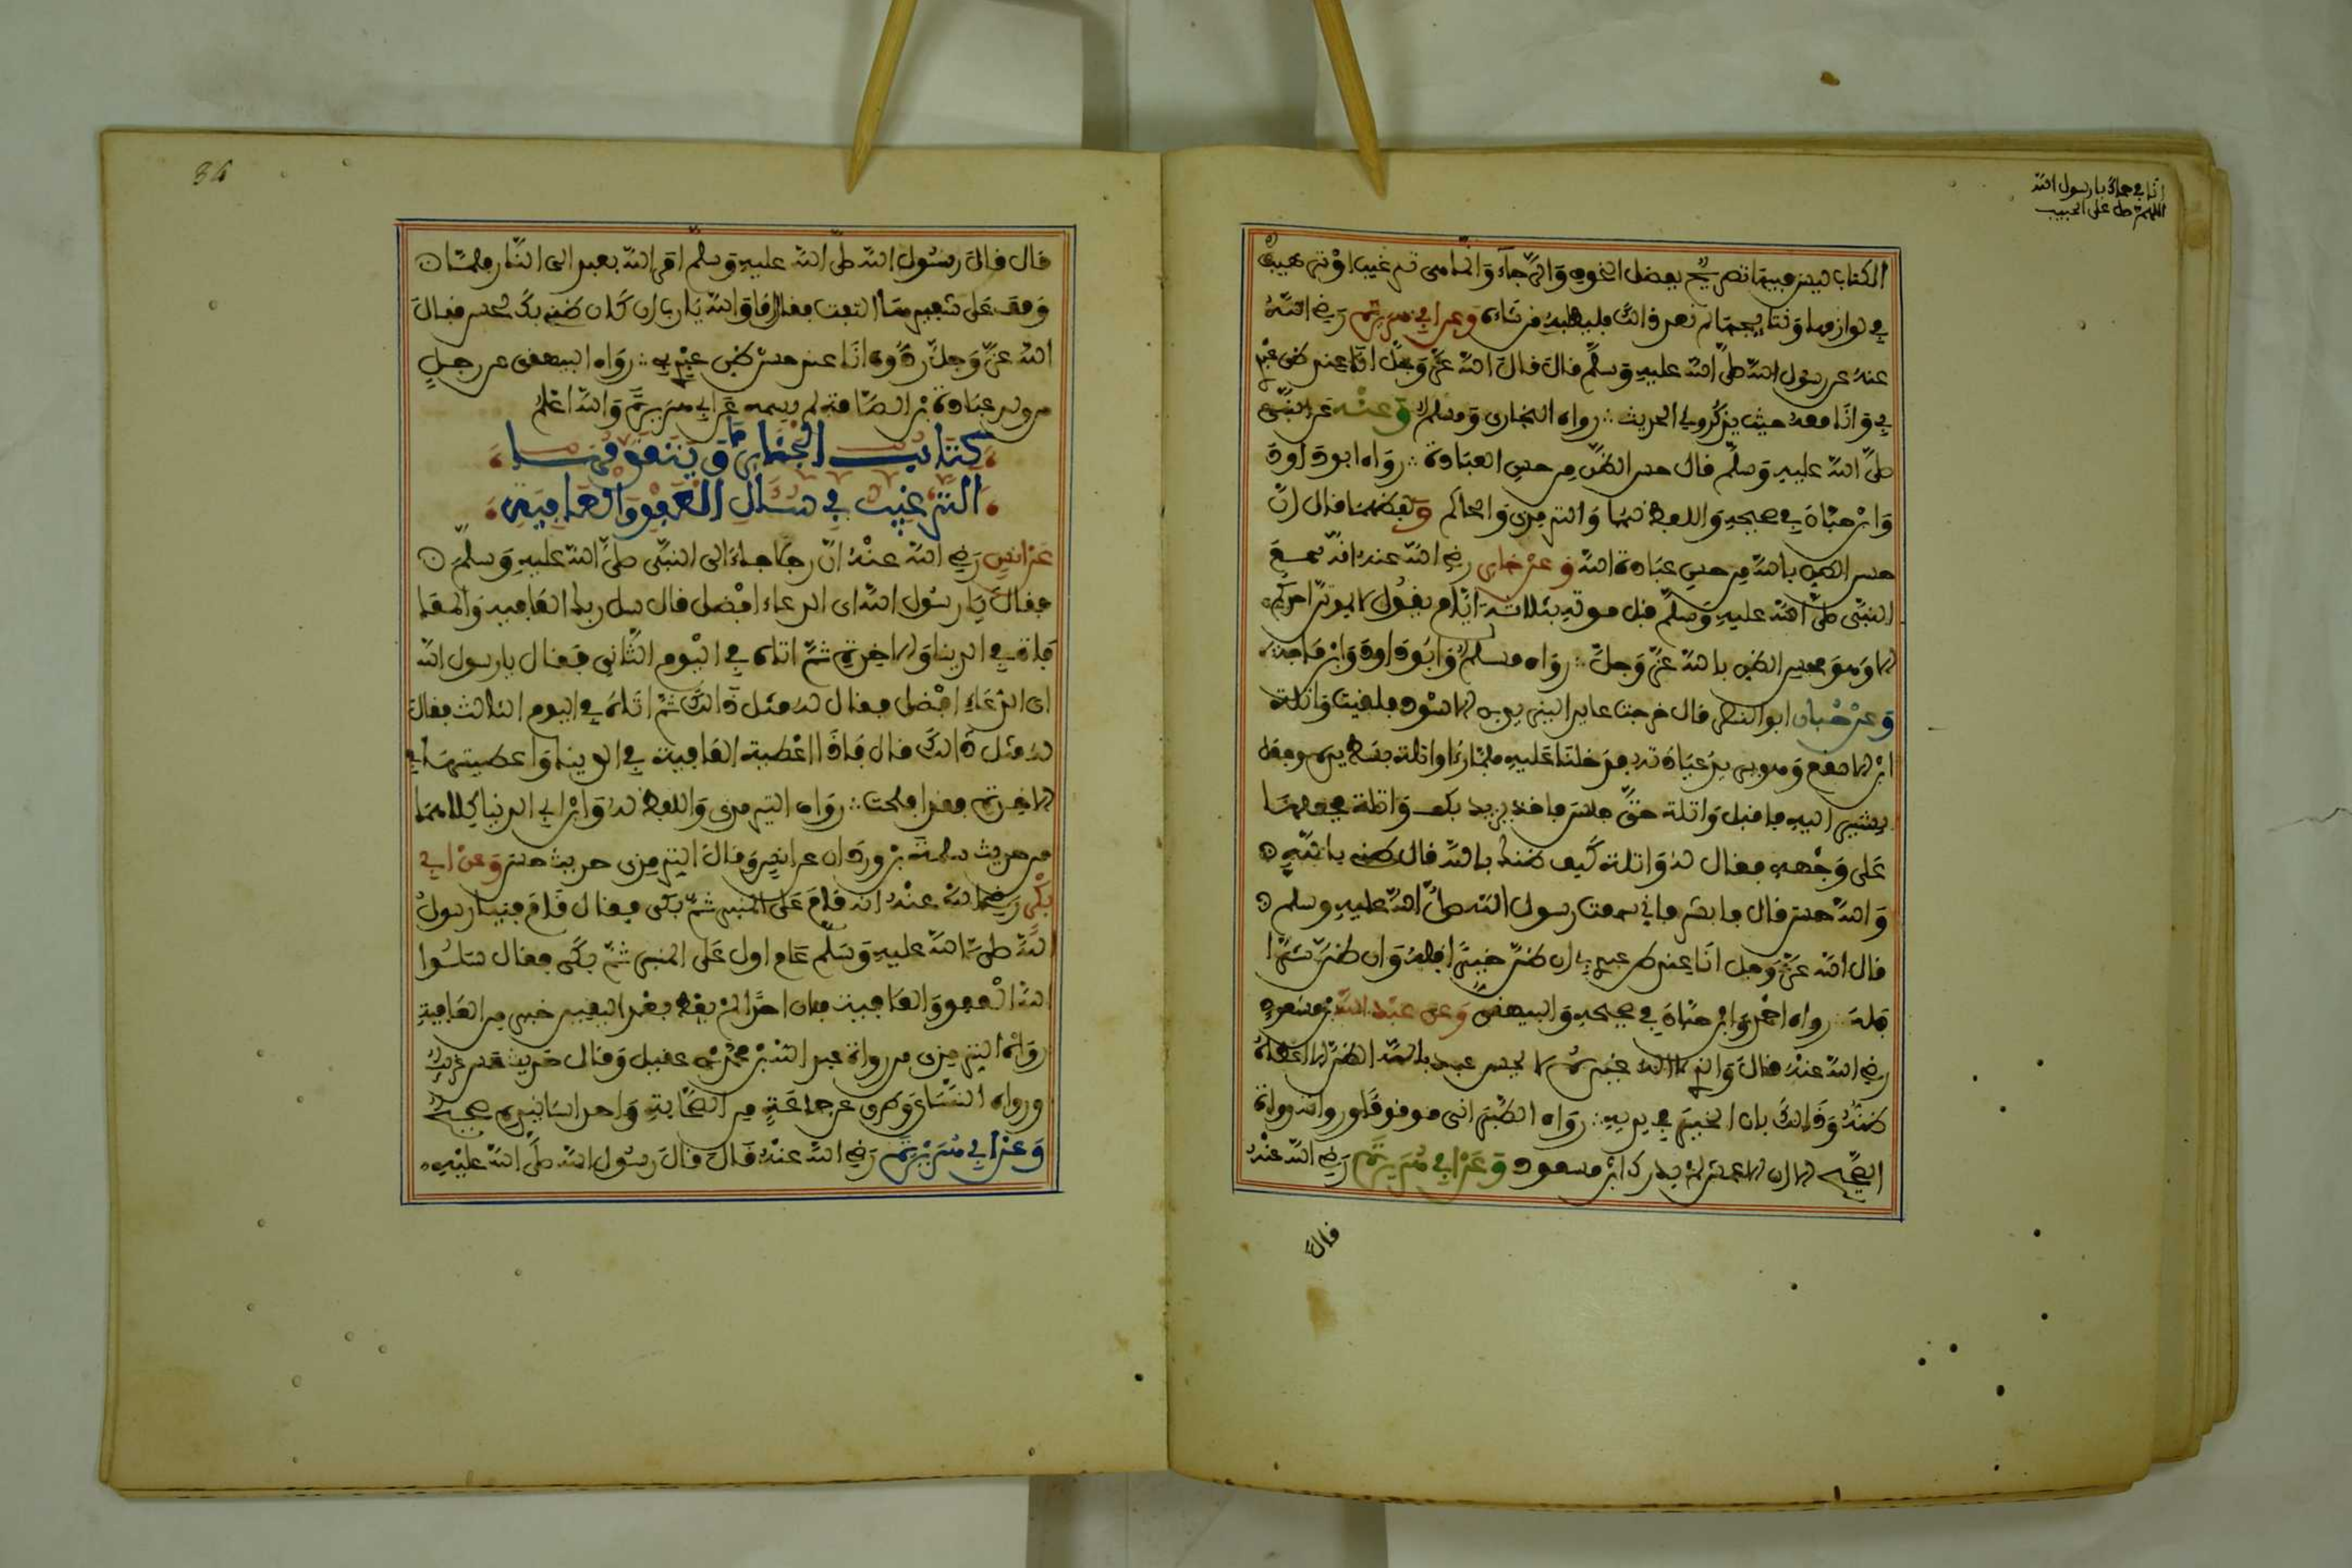 انا في حماك يا رسول الله
اللهم صل على الحبيب
الكتاب ليس فيها تصريح بفضل الخوف والرجاء وانما هي ترغيب او ترهيب
في لوازمهما ونتائجهما لم نعد ذلك فليطلبه من شاء وعن ابي هريرة رضي الله
عنه عن رسول الله صلى الله عليه وسلم قال قال الله عز وجل انا عند ظن عبد
بي وانا معه حيث يذكرني الحديث رواه البخاري ومسلم وعنه عن النبي
صلى الله عليه وسلم قال حسن الظن من حسن العبادة رواه ابو داود
وابن حبان في صحيحه واللفظ لهما والترمذي والحاكم ولفظهما قال ان
حسن الظن بالله من حسن عبادة الله وعن جابر رضي الله عنه انه سمع
النبي صلى الله عليه وسلم قبل موته بثلاثة ايام يقول لا يموتن احدكم
الا وهو يحسن الظن بالله عز وجل رواه مسلم وابو داود وابن ماجه
وعن حبان ابو النضر قال خرجت عايدا ليزيد بن الاسود فلقيت واثلة
ابن الاسقع وهو يريد عيادته فدخلنا عليه فلما راى واثلة بسط يده وجعل
يشير اليه فاقبل واثلة حتى جلس فاخذ يزيد بكف واثلة فجعلهما
على وجهه فقال له واثلة كيف ظنك بالله قال ظني بالله
والله حسن قال فابشر فاني سمعت رسول الله صلى الله عليه وسلم
قال الله عز وجل انا عند ظن عبدي بي ان ظن خيرا فله وان ظن شرا
فله رواه احمد وابن حبان في صحيحه والبيهقي وعن عبد الله بن مسعود
رضي الله عنه قال والذي لا اله غيره لا يحسن عبد بالله الظن الا اعطاه
ظنه وذلك بان الخير في يديه رواه الطبراني موقوفا ورواته رواة
الصحيح الا ان الاعمش لم يدرك ابن مسعود وعن ابي هريرة رضي الله عنه
قال
34
قال قال رسول الله صلى الله عليه وسلم امر الله بعبد الى النار فلما
وقف على شفيرها التفت فقال اما والله يا رب ان كان ظني بك لحسن فقال
الله عز وجل ردوه انا عند حسن ظن عبدي بي رواه البيهقي عن رجل
من ولد عبادة بن الصامت لم يسمه عن ابي هريرة والله اعلم
كتاب الجنائز وما يتقدمها
الترغيب في سؤال العفو والعافية
عن انس رضي الله عنه ان رجلا جاء الى النبي صلى الله عليه وسلم
فقال يا رسول الله اي الدعاء افضل قال سل ربك العافية والمعا
فاة في الدنيا والاخرة ثم اتاه في اليوم الثاني فقال يا رسول الله
اي الدعاء افضل فقال له مثل ذالك ثم اتاه في اليوم الثالث فقال
له مثل ذالك قال فاذا اعطيت العافية في الدنيا واعطيتها في
الاخرة فقد افلحت رواه الترمذي واللفظ له وابن ابي الدنيا كلاهما
من حديث سلمة بن وردان عن انس وقال الترمذي حديث حسن وعن ابي
بكر رضي الله عنه انه قام على المنبر ثم بكى فقال قام فينا رسول
الله صلى الله عليه وسلم عام اول على المنبر ثم بكى فقال سلوا
الله العفو والعافية فان احدا لم يعط بعد اليقين خير من العافية
رواه الترمذي من رواية عبد الله بن محمد بن عقيل وقال حديث حسن غريب
ورواه النسائي من طرق عن جماعة من الصحابة واحد اسانيده صحيح
وعن ابي هريرة رضي الله عنه قال قال رسول الله صلى الله عليه